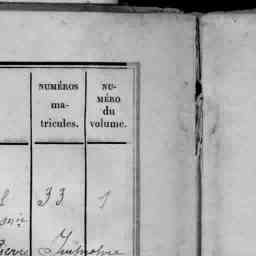 NUMÉROS
ma-
tricules.
NU-
MÉRO
du
volume.
33
1